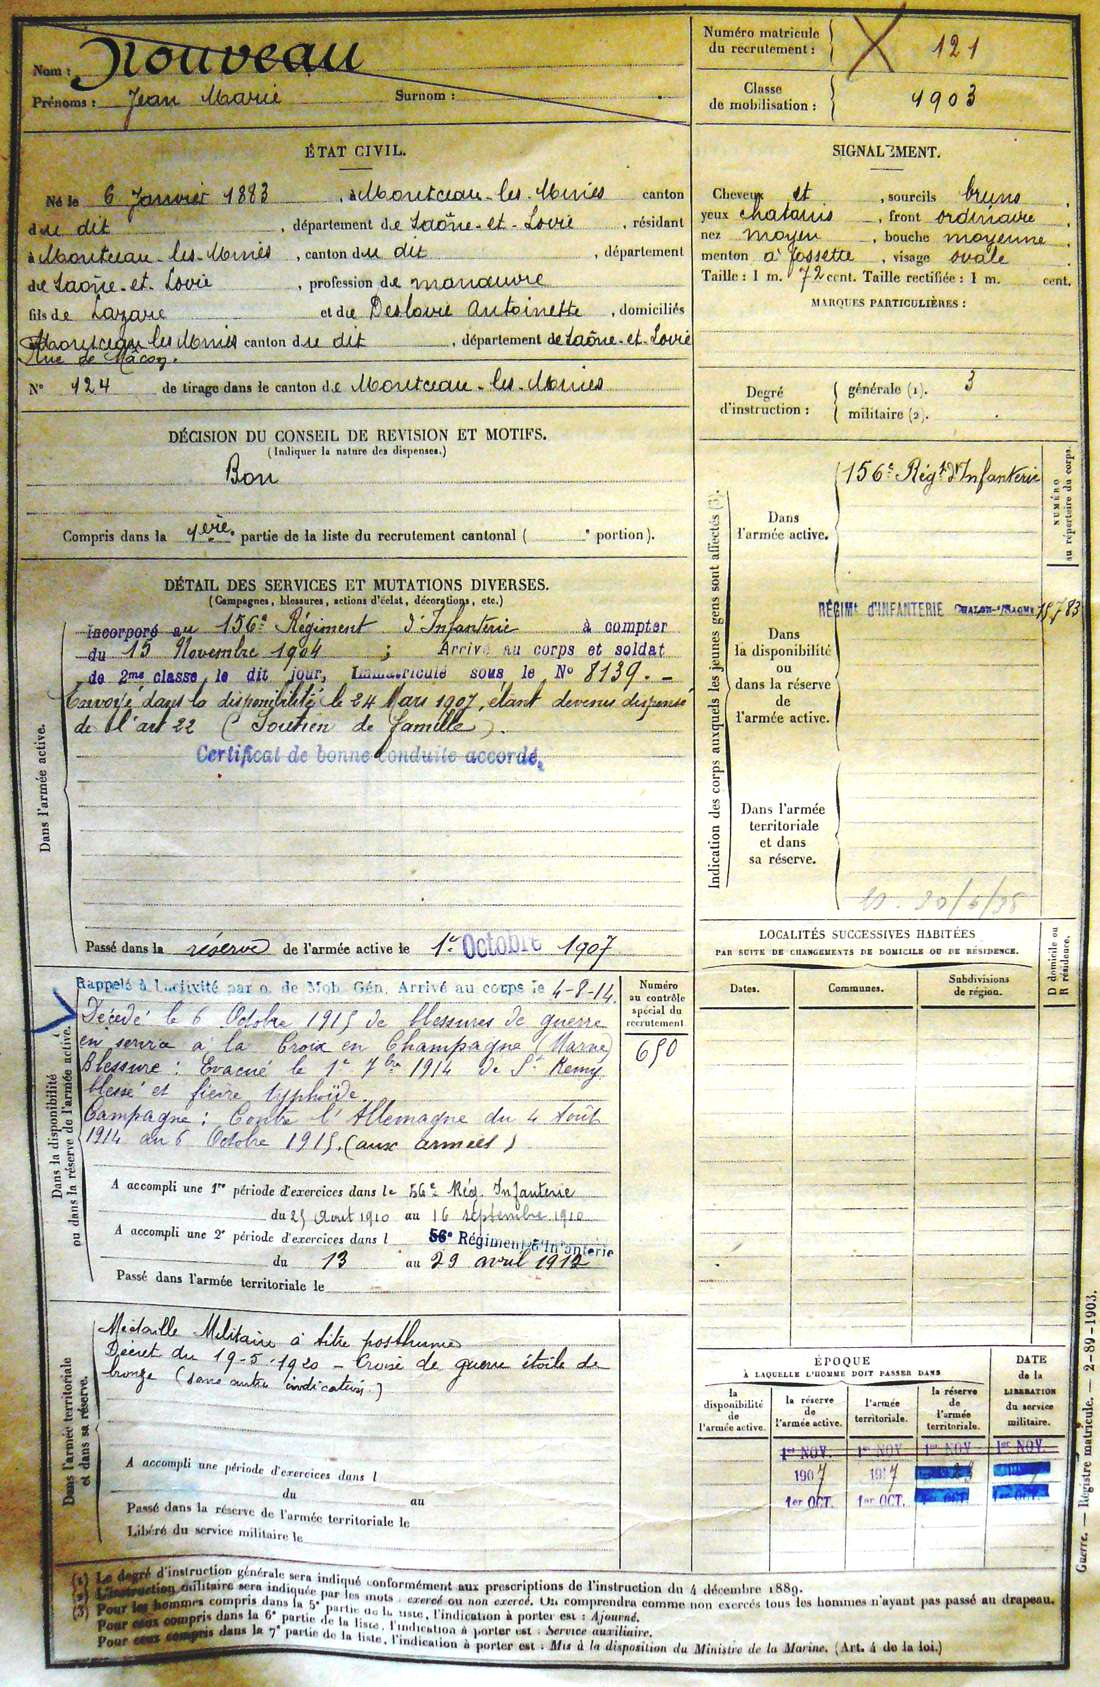 Nom : Nouveau
Prénoms : Jean Marie Surnom :
Numéro matricule du recrutement : 121
Classe de mobilisation : 1903
ÉTAT CIVIL.
Né le 6 Janvier 1883, à Montceau-les-Mines canton
du dit, département de Saône-et-Loire, résidant
à Montceau-les-Mines, canton du dit, département
de Saône-et-Loire, profession de manœuvre
fils de Lazare et de Desloire Antoinette, domiciliés
à Montceau les Mines canton du dit, département de Saône-et-Loire
Rue de Mâcon.
N° 124 de tirage dans le canton de Montceau-les-Mines
SIGNALEMENT.
Cheveux et, sourcils bruns,
yeux chatains, front ordinaire
nez moyen, bouche moyenne,
menton à fossette, visage ovale
Taille : 1 m. 72 cent. Taille rectifiée : 1 m. cent.
MARQUES PARTICULIÈRES :
Degré d'instruction : générale (1). 3
militaire (2).
DÉCISION DU CONSEIL DE REVISION ET MOTIFS.
(Indiquer la nature des dispenses.)
Bon
Compris dans la 1ère partie de la liste du recrutement cantonal ( e portion).
DÉTAIL DES SERVICES ET MUTATIONS DIVERSES.
(Campagnes, blessures, actions d'éclat, décorations, etc.)
Dans l'armée active.
Incorporé au 156e Régiment d'Infanterie à compter
du 15 Novembre 1904 ; Arrivé au corps et soldat
de 2me classe le dit jour, Immatriculé sous le No 8139.-
Envoyé dans la disponibilité le 24 Mars 1907, étant devenu dispensé
de l'art 22 (Soutien de famille).
Certificat de bonne conduite accordé.
Passé dans la réserve de l'armée active le 1er Octobre 1907
Indication des corps auxquels les jeunes gens sont affectés (3).
NUMÉRO au répertoire du corps.
Dans l'armée active.
156e Régt d'Infanterie
RÉGIMt d'INFANTERIE CHALON-s/SAONE
Dans la disponibilité ou dans la réserve de l'armée active.
Dans l'armée territoriale et dans sa réserve.
LOCALITÉS SUCCESSIVES HABITÉES
PAR SUITE DE CHANGEMENTS DE DOMICILE OU DE RÉSIDENCE.
D domicile ou R résidence.
Dates. Communes. Subdivisions de région.
Dans la disponibilité ou dans la réserve de l'armée active.
Numéro au contrôle spécial du recrutement
650
Rappelé à l'activité par o. de Mob. Gén. Arrivé au corps le 4-8-14.
Décédé le 6 Octobre 1915 de blessures de guerre
en service à la Croix en Champagne (Marne)
Blessure : Evacué le 1er 7bre 1914 de St Remy
blessé et fièvre typhoïde.
Campagne : Contre l'Allemagne du 4 Août
1914 au 6 Octobre 1915. (aux armées)
A accompli une 1re période d'exercices dans le 56e Rég. Infanterie
du 25 Août 1910 au 16 septembre 1910
A accompli une 2e période d'exercices dans l 56e Régiment d'Infanterie
du 13 au 29 avril 1912
Passé dans l'armée territoriale le
Dans l'armée territoriale et dans sa réserve.
Médaille Militaire à titre posthume
Décret du 19-5-1920 - Croix de guerre étoile de
bronze (sans autre indication)
A accompli une période d'exercices dans l
du au
Passé dans la réserve de l'armée territoriale le
Libéré du service militaire le
ÉPOQUE
À LAQUELLE L'HOMME DOIT PASSER DANS
DATE de la LIBÉRATION du service militaire.
la disponibilité de l'armée active. la réserve de l'armée active. l'armée territoriale. la réserve de l'armée territoriale.
1er NOV. 1er NOV. 1er NOV. 1er NOV.
1907 1917
1er OCT. 1er OCT. 1er OCT. 1er OCT.
Guerre. — Registre matricule. — 2-89-1903.
(1) Le degré d'instruction générale sera indiqué conformément aux prescriptions de l'instruction du 4 décembre 1889.
(2) L'instruction militaire sera indiquée par les mots : exercé ou non exercé. On comprendra comme non exercés tous les hommes n'ayant pas passé au drapeau.
(3) Pour les hommes compris dans la 5e partie de la liste, l'indication à porter est : Ajourné.
Pour ceux compris dans la 6e partie de la liste, l'indication à porter est : Service auxiliaire.
Pour ceux compris dans la 7e partie de la liste, l'indication à porter est : Mis à la disposition du Ministre de la Marine. (Art. 4 de la loi.)